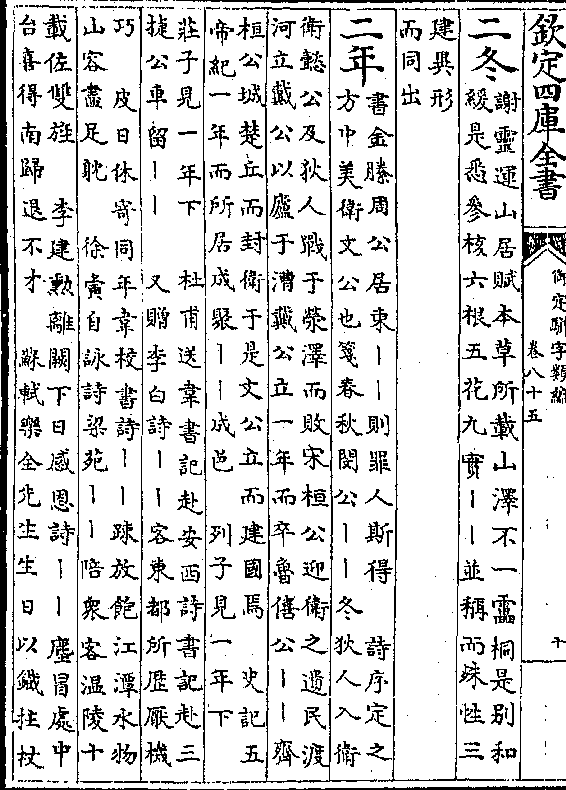 欽定四庫全書
御定駢字類編
卷八十五
十
二冬
謝靈運山居賦本草所載山澤不一靁桐是别和
緩是悉參核六根五花九實丨丨並稱而殊性三
建異形
而同出
二年
書金縢周公居東丨丨則罪人斯得 詩序定之
方中美衛文公也箋春秋閔公丨丨冬狄人入衛
衛懿公及狄人戰于熒澤而敗宋桓公迎衛之遺民渡
河立戴公以廬于漕戴公立一年而卒魯僖公丨丨齊
桓公城楚丘而封衛于是文公立而建國焉 史記五
帝紀一年而所居成聚丨丨成邑 列子見一年下
莊子見一年下 杜甫送韋書記赴安西詩書記赴三
捷公車留丨丨 又贈李白詩丨丨客東都所歴厭機
巧 皮日休寄同年韋校書詩丨丨踈放飽江潭水物
山容盡足躭 徐夤自詠詩梁苑丨丨陪衆客温陵十
載佐雙旌 李建勲離闕下日感恩詩丨丨塵冒處中
台喜得南歸退不才 蘇軾樂全先生生日以鐵拄杖